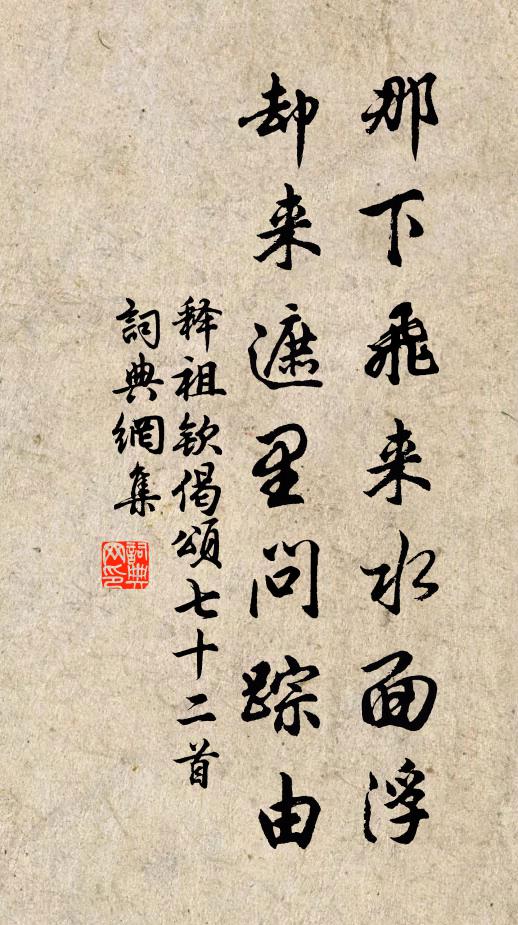 那下飛来水面浮
却来遮里问踪由
释祖钦偈頌七十二首
詞典網集
詞典网印